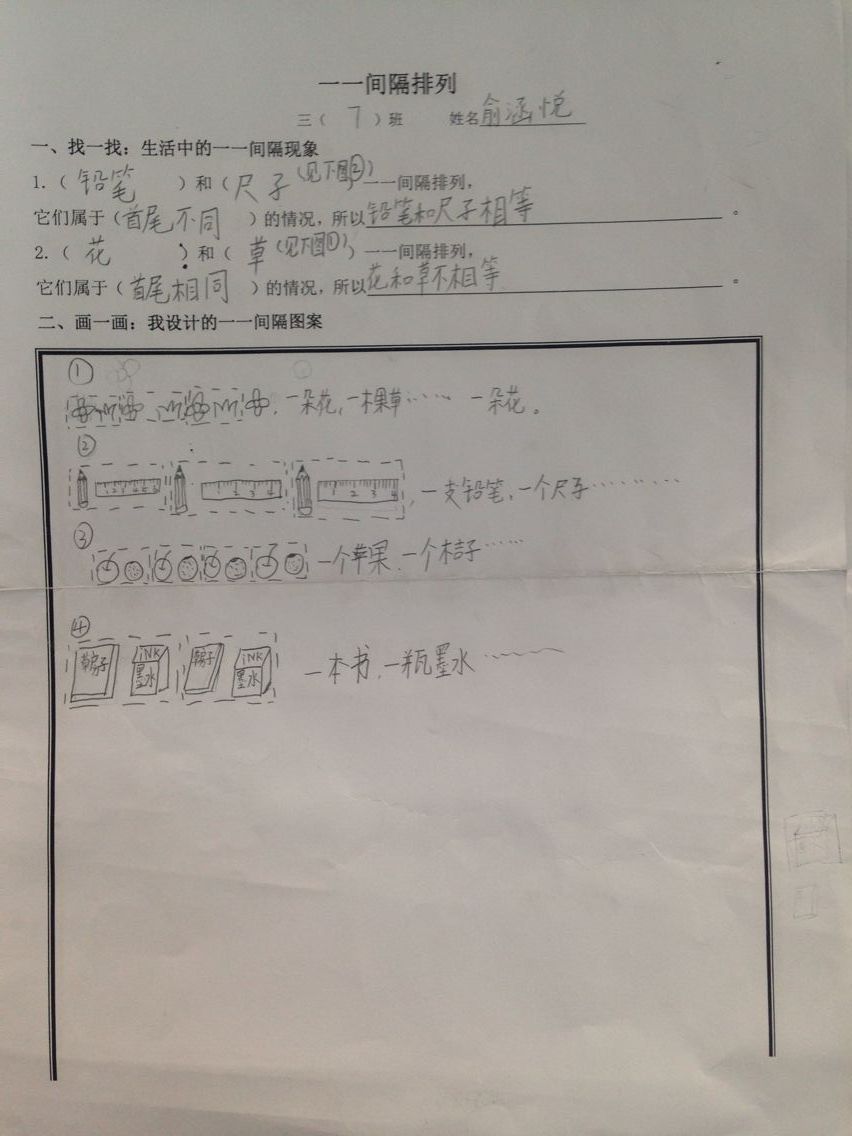 一一间隔排列
三（ 7 ）班 姓名俞涵悦
一、找一找：生活中的一一间隔现象
1.（ 铅笔 ）和（ 尺子（见下图②））一一间隔排列，
它们属于（首尾不同 ）的情况，所以铅笔和尺子相等 。
2.（ 花 ）和（ 草（见下图①））一一间隔排列，
它们属于（首尾相同 ）的情况，所以花和草不相等 。
二、画一画：我设计的一一间隔图案
①
，一朵花，一棵草…… 一朵花。
②
1 2 3 4 5 6 1 2 3 4 1 2 3 4 ，一支铅笔、一个尺子………
③
一个苹果、一个桔子……
④
iNK 墨水 iNK 墨水 一本书，一瓶墨水……